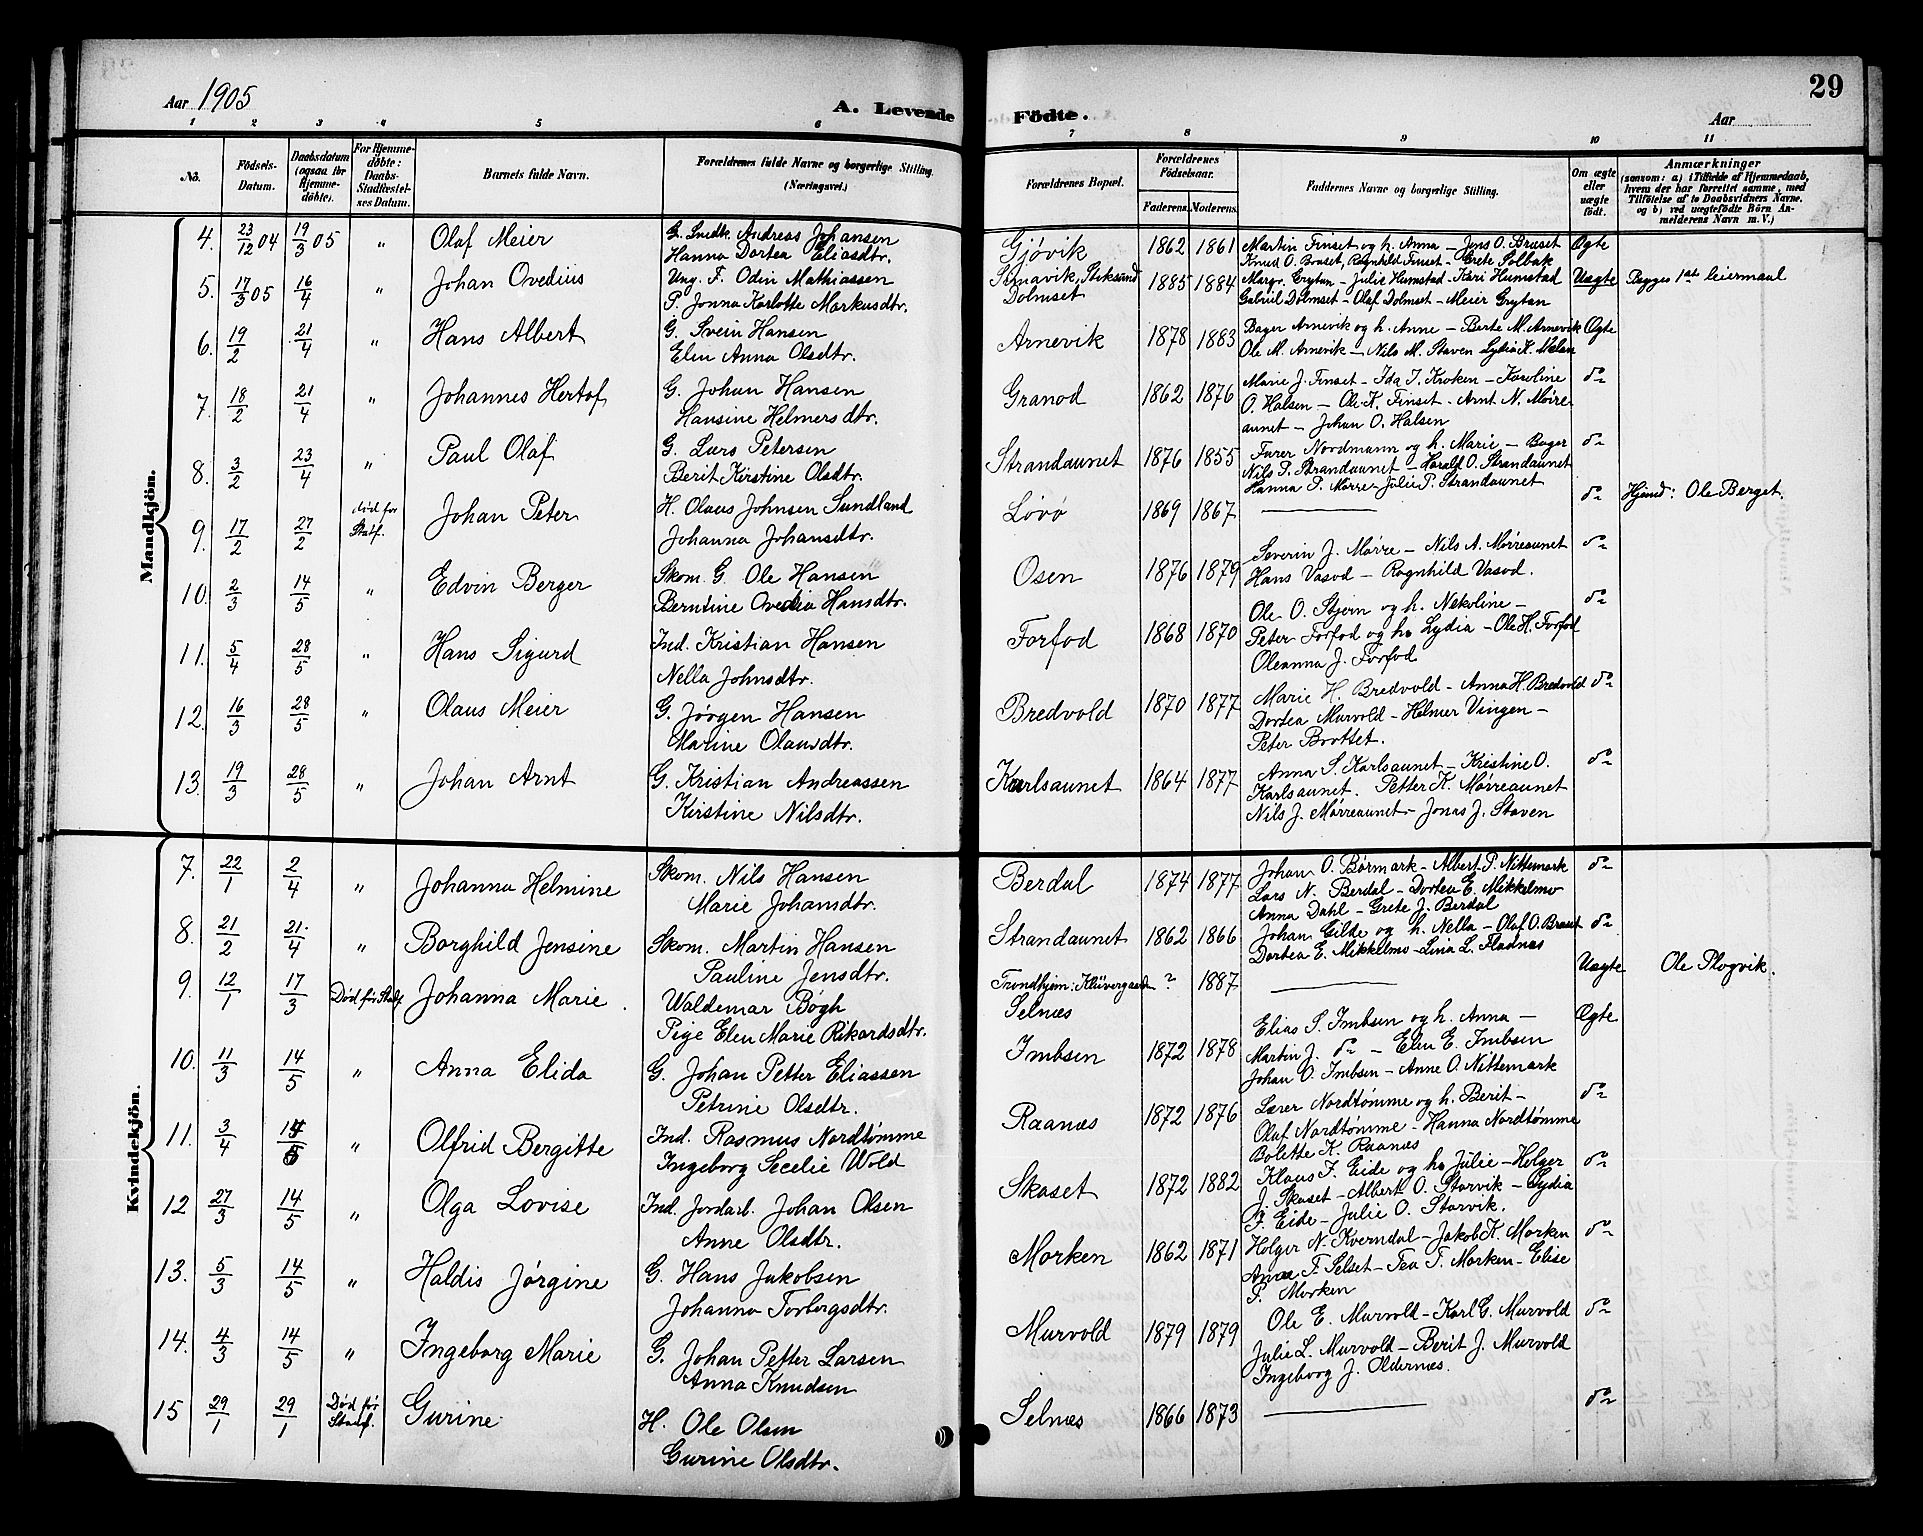 29
Aar 1905
A. Levende Födte.
Aar
1 2 3 4 5 6 7 8 9 10 11
No.
Födsels-Datum.
Daabsdatum (ogsaa for Hjemmedöbte).
For Hjemmedöbte: Daabs-Stadfæstelses Datum.
Barnets fulde Navn.
Forældrenes fulde Navne og borgerlige Stilling. (Næringsvei.)
Forældrenes Bopæl.
Forældrenes Födselsaar.
Faderens. Moderens.
Faddernes Navne og borgerlige Stilling.
Om ægte eller uægte födt.
Anmærkninger
(saasom: a) i Tilfælde af Hjemmedaab, hvem der har forrettet samme, med Tilföielse af to Daabsvidners Navne. og b) ved uægtefödte Börn Anmelderens Navn m. V.)
Mandkjön.
4. 23/12 04 19/3 05 " Olaf Meier
G. Snedk. Andreas Johansen
Hanna Dortea Eliasdtr.
Gjøvik 1862 1861
Martin Finset og h. Anna – Jens O. Bræset
Knud O. Braset, Ragnhild Finset – Grete Solbak
Ægte
5. 17/3 05 16/4 " Johan Ovedius
Ung. F. Odin Mathiassen
P. Jonna Karlotte Markusdtr.
Dolmset 1885 1884
Margr. Grytan – Julie Humstad – Kari Humstad
Gabriel Dolmset – Olaf Dolmset – Meier Grytan
Uægte Begges 1ste leiermaal
6. 19/2 21/4 " Hans Albert
G. Svein Hansen
Elen Anna Olsdtr.
Arnevik 1878 1883
Bager Arnevik og h. Anne – Berte M. Arnevik
Ole M. Arnevik – Nils M. Staven Lydia K. Mælan
Ægte
7. 18/2 21/4 " Johannes Hertof
G. Johan Hansen
Hansine Helmersdtr.
Granod 1862 1876
Marie J. Finset – Ida J. Kroken – Karoline
O. Halsen – Ole K. Finset – Arnt N. Mørre-
aunet – Johan O. Halsen
do
8. 3/2 23/4 " Paul Olaf
G. Lars Petersen
Berit Kirstine Olsdtr.
Strandaunet 1876 1855
Furer Nordmann og h. Marie – Bager
Nils P. Strandaunet – Harald O. Strandaunet
Hanna P. Mørre – Julie P. Strandaunet
do
9. 17/2 27/2 død før Stadf. Johan Peter
H. Olaus Johnsen Sundland
Johanna Johansdtr.
Løvø 1869 1867
do Hjemd: Ole Berget.
10. 2/3 14/5 " Edvin Berger
Skom. G. Ole Hansen
Berntine Ovedia Hansdtr.
Osen 1876 1879
Severin J. Mørre – Nils A. Mørreaunet
Hans Vasod – Ragnhild Vasod.
do
11. 5/4 28/5 " Hans Sigurd
Ind. Kristian Hansen
Nella Johnsdtr.
Forfod 1868 1870
Ole O. Stjern og h. Nekoline –
Peter Forfod og h. Lydia – Ole H. Forfod
Oleanna J. Forfod
do
12. 16/3 28/5 " Olaus Meier
G. Jørgen Hansen
Marine Olausdtr.
Bredvold 1870 1877
Marie H. Bredvold – Anna H. Bredvold
Dortea Murvold – Helmer Vingen –
Peter Brattet.
do
13. 19/3 28/5 " Johan Arnt
G. Kristian Andreassen
Kirstine Nilsdtr.
Karlsaunet 1864 1877
Anna S. Karlsaunet – Kristine O.
Karlsaunet. Petter K. Mørreaunet
Nils J. Mørreaunet – Jonas J. Staven
do
Kvindekjön.
7. 22/1 2/4 " Johanna Helmine
Skom. Nils Hansen
Marie Johansdtr.
Berdal 1874 1877
Johan O. Børmark – Albert P. Nittemark
Lars N. Berdal – Dortea E. Mikkelmo
Anna Dahl – Grete J. Berdal
do
8. 21/2 21/4 " Borghild Jensine
Skom. Martin Hansen
Pauline Jensdtr.
Strandaunet 1862 1866
Johan Eilde og h. Nella – Olaf O. Braset
Dortea E. Mikkelmo – Lina L. Fladnæs
do
9. 12/1 17/3 Død før Stadf Johanna Marie.
Waldemar Bøgh
Pige Elen Marie Rikardsdtr.
Trondhjem: Klüvergaard
Selnæs ? 1887
Uægte Ole Plogvik.
10. 11/3 14/5 " Anna Elida
G. Johan Petter Eliassen
Petrine Olsdtr.
Imbsen 1872 1878
Elias S. Imbsen og h. Anna –
Martin J. do – Elen E. Imbsen
Johan O. Imbsen – Anne O. Nittemark
Ægte
11. 3/4 14/5 " Olfrid Bergitte
Ind. Rasmus Nordtømme
Ingeborg Secelie Wold
Raanæs 1872 1876
Lærer Nordtømme og h. Berit –
Olaf Nordtømme – Hanna Nordtømme
Bolette K. Raanæs
do
12 27/3 14/5 " Olga Lovise
Ind. Jordarb. Johan Olsen
Anne Olsdtr.
Skaset 1872 1882
Klaus F. Eide og h. Julie – Holger
J. Skaset – Albert O. Storvik – Lydia
F. Eide – Julie O. Storvik.
do
13. 5/3 14/5 " Haldis Jørgine
G. Hans Jakobsen
Johanna Torbergsdtr.
Morken 1862 1871
Holger N. Kverndal – Jakob K. Morken
Anne F. Selset – Tea T. Morken – Elise
P. Morken
do
14. 4/3 14/5 " Ingeborg Marie
G. Johan Petter Larsen
Anna Knudsen
Murvold 1879 1879
Ole E. Murvold – Karl G. Murvold
Julie L. Murvold – Berit J. Murvold
Ingeborg J. Oldernæs.
do
15 29/1 29/1 Død før Stadf. Gurine
H. Ole Olsen
Gurine Olsdtr.
Selnæs 1866 1873
do